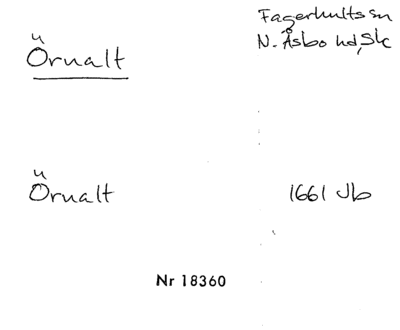 Örnalt
Fagerhults sn
N. Åsbo hd, Sk
Örnalt
1661 Jb
Nr 18360